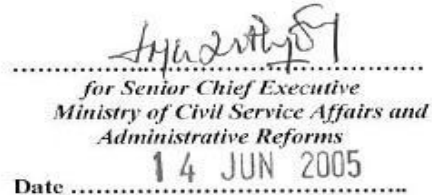 for Senior Chief Executive
Ministry of Civil Service Affairs and
Administrative Reforms
14 JUN 2005
Date ..........................................